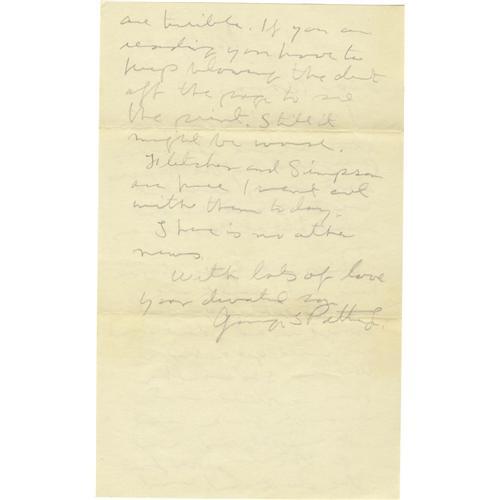 are terrible. If you are
reading you have to
keep blowing the dust
off the page to see
the print. Still it
might be worse.
Fletcher and Simpson
are here I went out
with them to day.
There is no other
news.
With lots of love
your devoted son
George S Patton Jr.